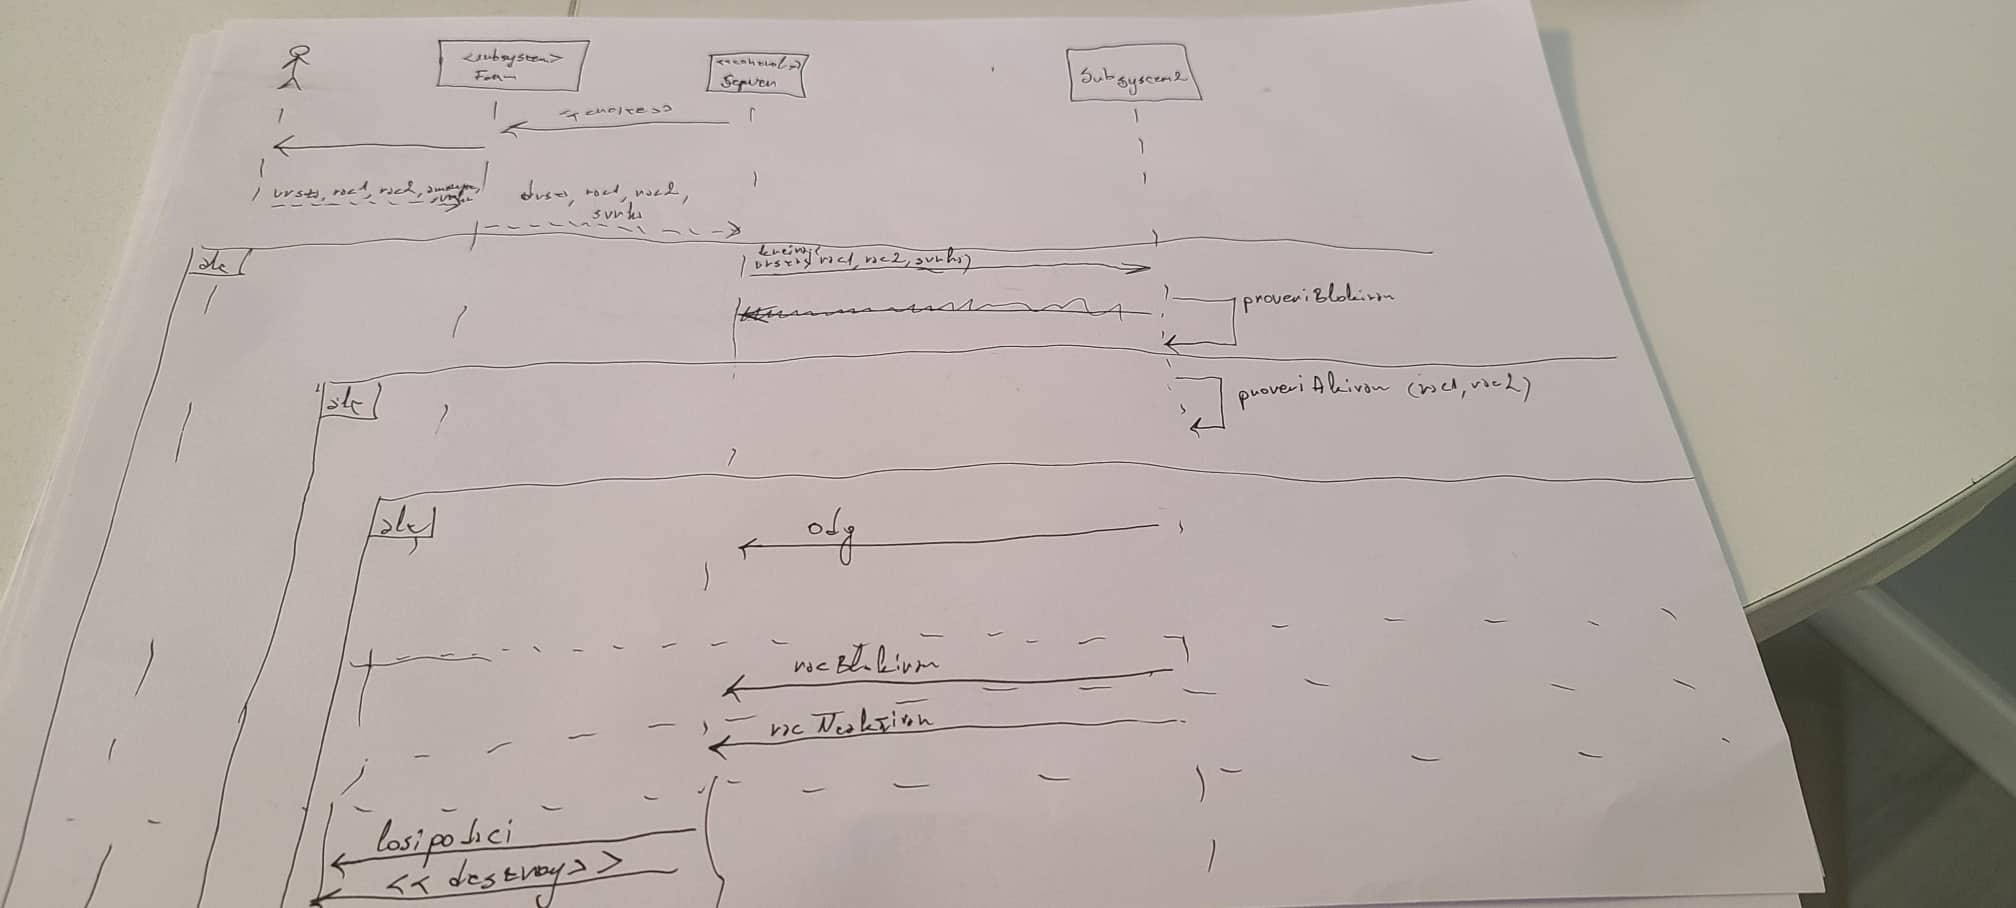 <subsystem>
Form
<<control>>
Server
Subsystem2
<<create>>
vrsta, rac1, rac2,
vrsta, rac1, rac2,
svrha
alt
kreiraj(
vrsta, rac1, rac2, svrha)
proveriBlokiran
alt
proveriAktivan (rac1, rac2)
alt
odg
racBlokiran
racNeaktivan
losipodaci
<<destroy>>